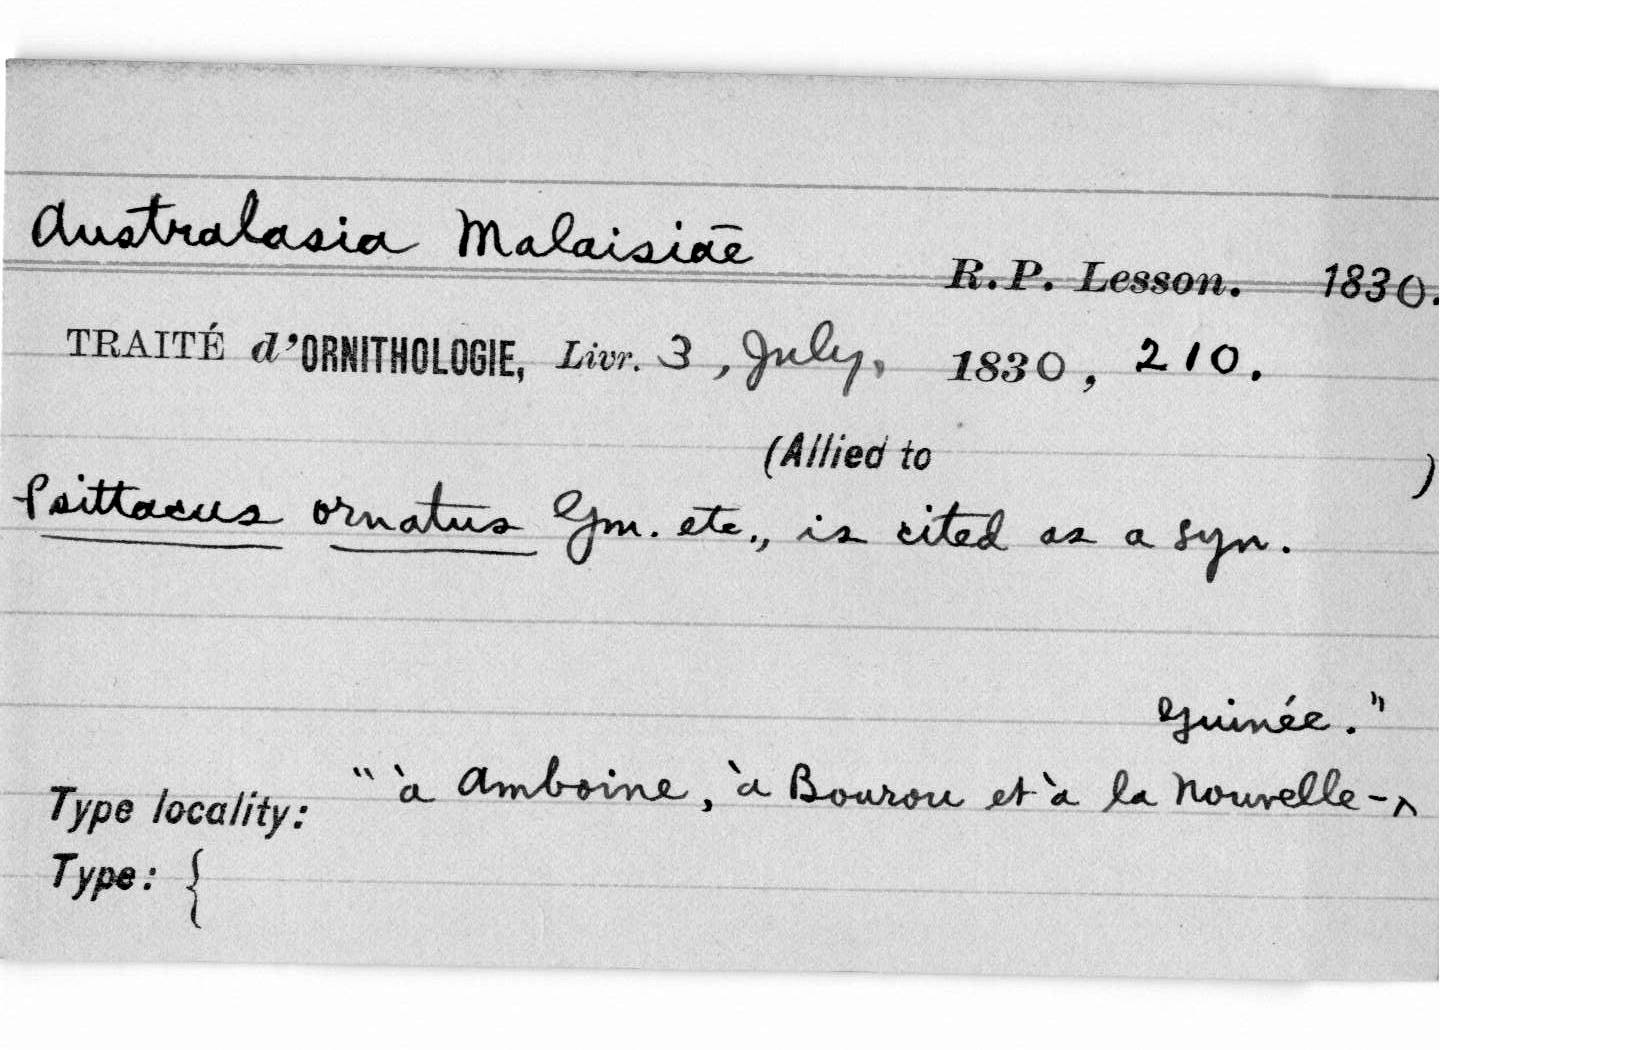 Australasia Malaisiae R.P. Lesson. 1830.
TRAITÉ d'ORNITHOLOGIE, Livr. 3, July, 1830, 210.
(Allied to )
Psittacus ornatus Gm. etc., is cited as a syn.
Guinée."
Type locality: "à Amboine, à Bourou et à la Nouvelle-^
Type: {